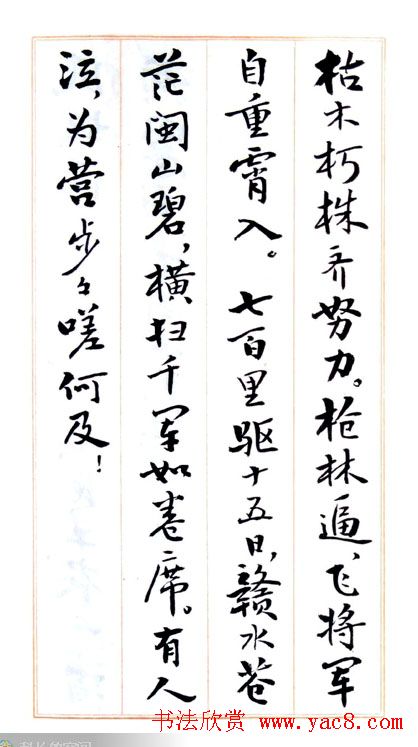 枯木朽株齐努力。枪林逼，飞将军
自重霄入。七百里驱十五日，赣水苍
茫闽山碧，横扫千军如卷席。有人
泣，为营步々嗟何及！
书法欣赏 www.yac8.com